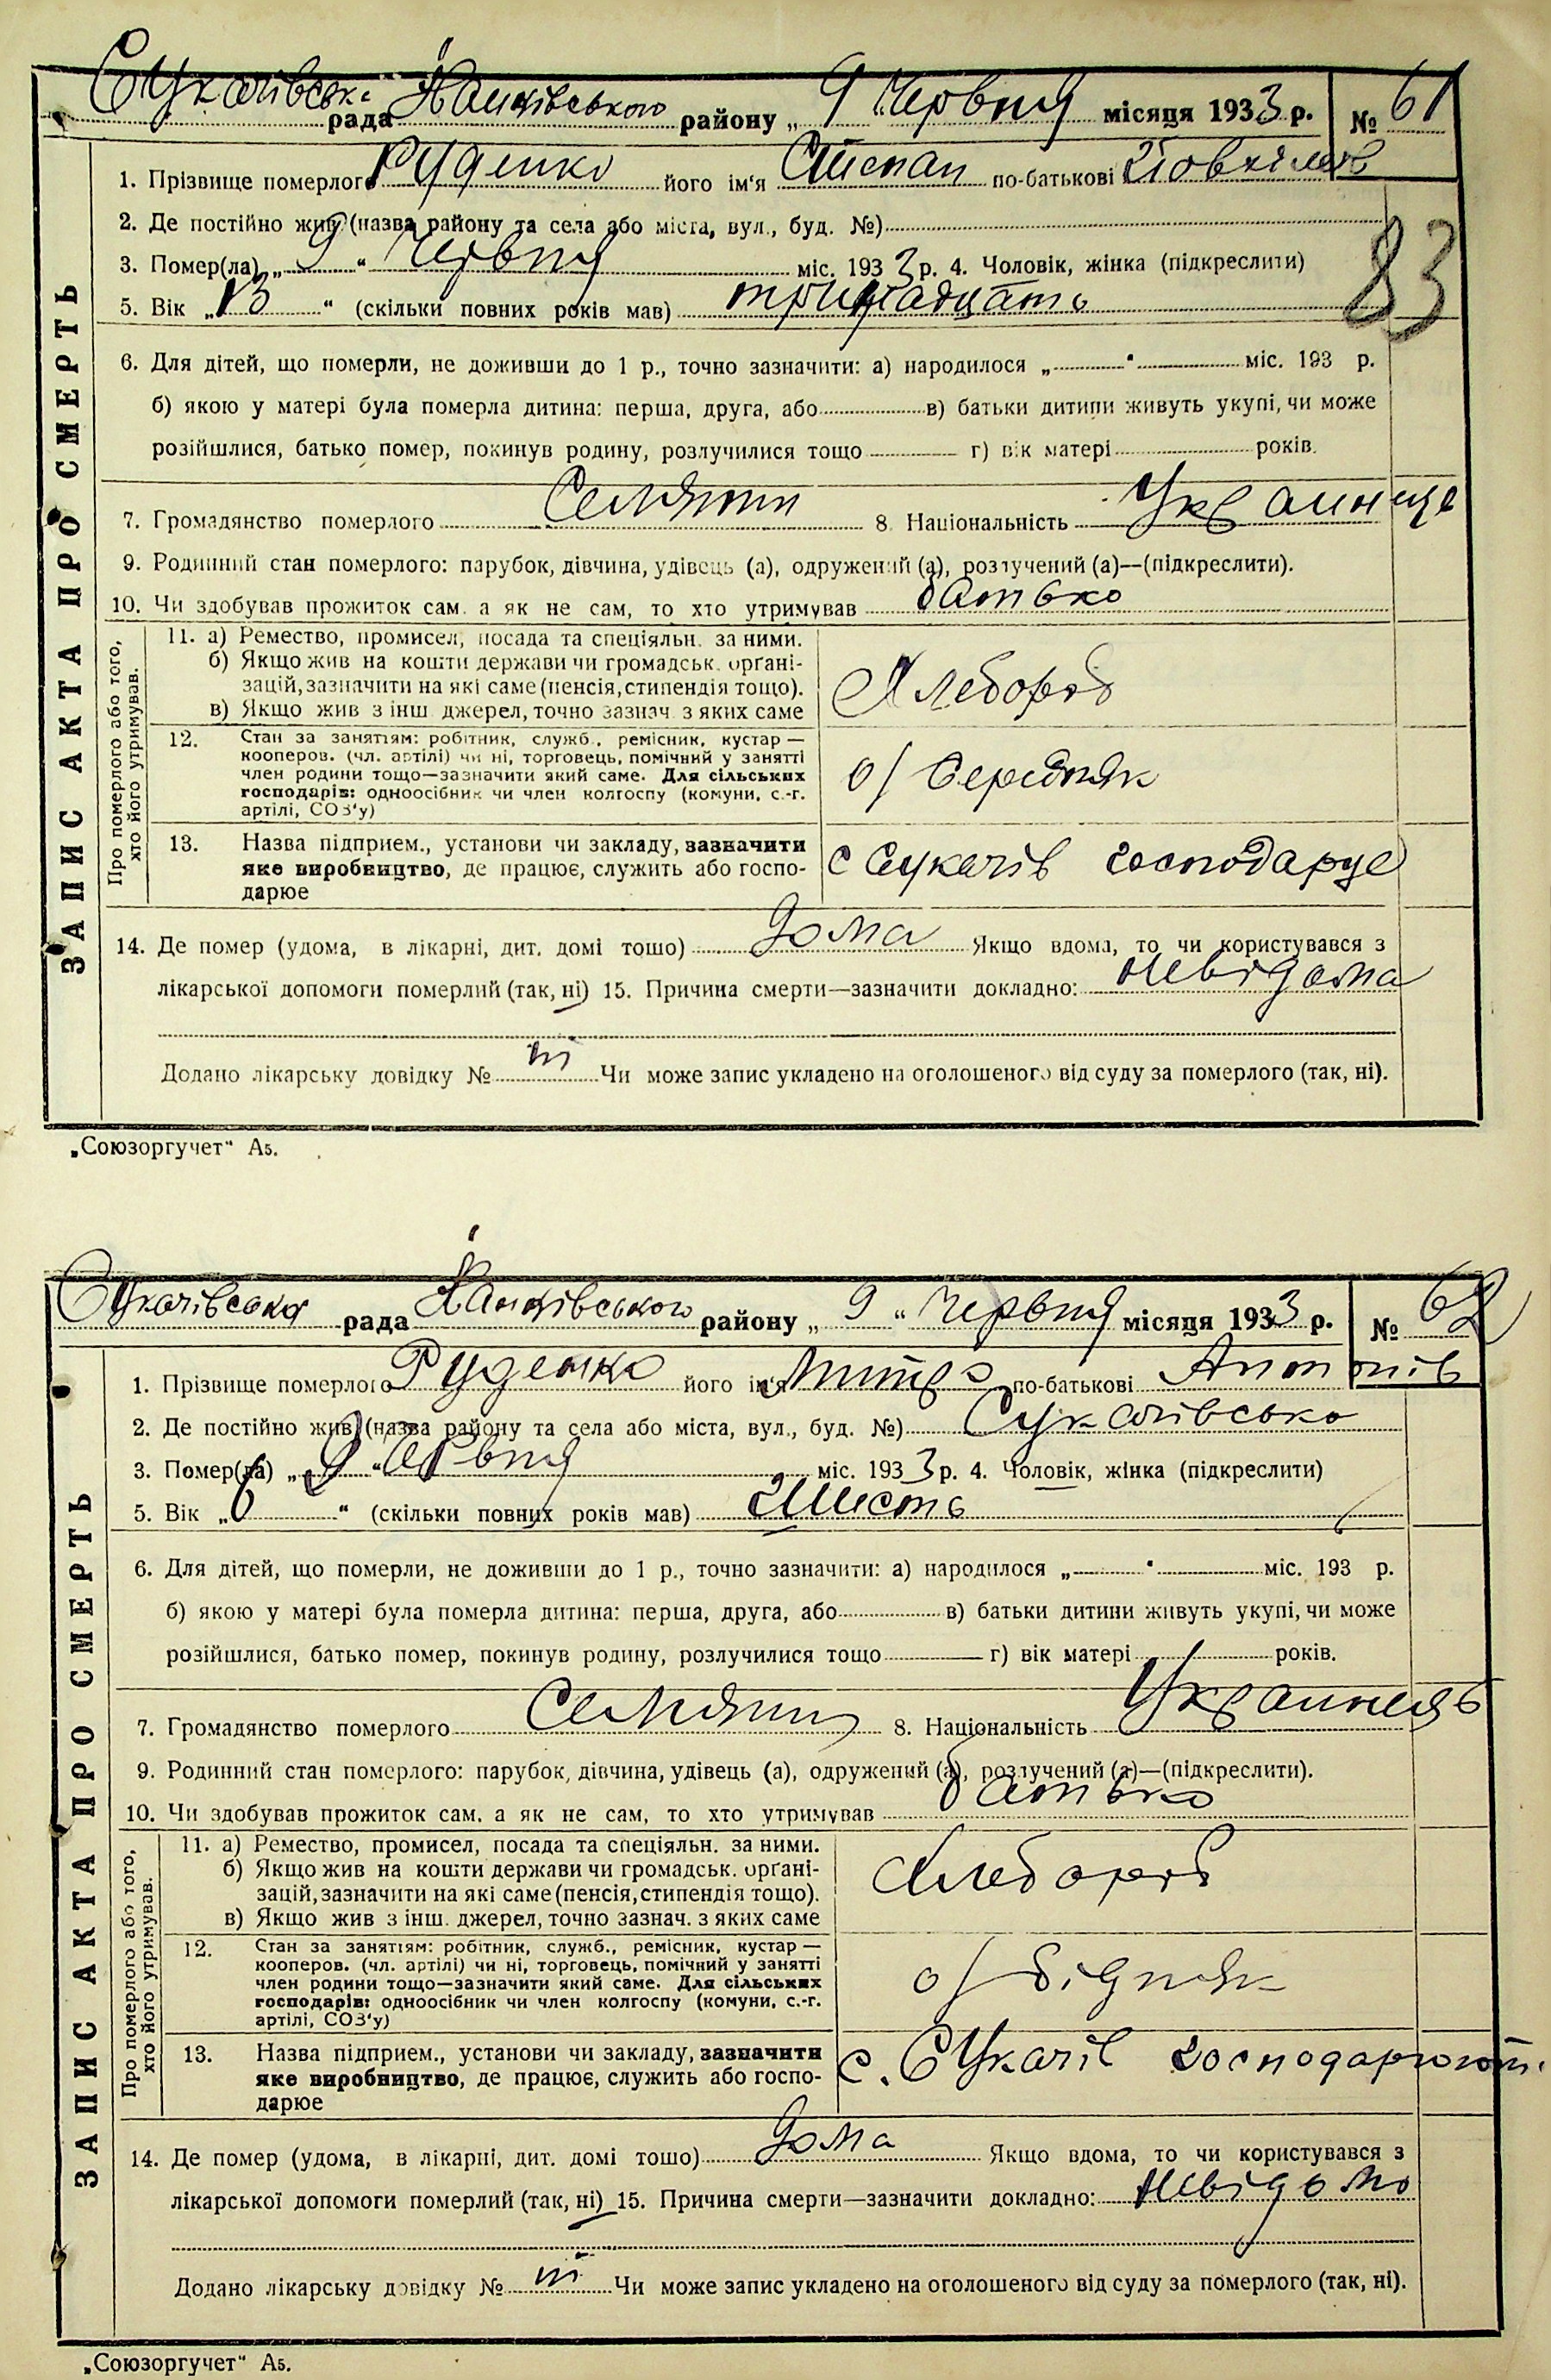 Сукачівська рада Іванківського району „ 9 " Червня місяця 1933 р. № 61
1. Прізвище померлого Руденко його ім'я Степан по-батькові
2. Де постійно жив (назва району та села або міста, вул., буд. №)
3. Помер(ла) „ 9 " Червня міс. 1933 р. 4. Чоловік, жінка (підкреслити)
83
5. Вік „ 13 " (скільки повних років мав) тринадцать
6. Для дітей, що померли, не доживши до 1 р., точно зазначити: а) народилося „ " міс. 193 р.
б) якою у матері була померла дитина: перша, друга, або в) батьки дитини живуть укупі, чи може
розійшлися, батько помер, покинув родину, розлучилися тощо г) вік матері років.
7. Громадянство померлого Селянин 8. Національність
9. Родинний стан померлого: парубок, дівчина, удівець (а), одружений (а), розлучений (а)—(підкреслити).
10. Чи здобував прожиток сам. а як не сам, то хто утримував батько
Про померлого або того, хто його утримував.
11. а) Ремество, промисел, посада та спеціяльн. за ними.
б) Якщо жив на кошти держави чи громадськ. органі-
зацій, зазначити на які саме (пенсія, стипендія тощо).
в) Якщо жив з інш. джерел, точно зазнач. з яких саме
Хлебороб
12. Стан за заняттям: робітник, служб., ремісник, кустар —
кооперов. (чл. артілі) чи ні, торговець, помічний у занятті
член родини тощо—зазначити який саме. Для сільських
господарів: одноосібник чи член колгоспу (комуни, с.-г.
артілі, СОЗ'у)
о/ Середняк
13. Назва підприєм., установи чи закладу, зазначити
яке виробництво, де працює, служить або госпо-
дарює
с Сукачів господарує
14. Де помер (удома, в лікарні, дит. домі тощо) дома Якщо вдома, то чи користувався з
лікарської допомоги померлий (так, ні) 15. Причина смерти—зазначити докладно: невідома
Додано лікарську довідку № ні Чи може запис укладено на оголошеного від суду за померлого (так, ні).
ЗАПИС АКТА ПРО СМЕРТЬ
„Союзоргучет" А5.
Сукачівська рада Іванківського району „ 9 " Червня місяця 1933 р. № 62
1. Прізвище померлого Руденко його ім'я Митро по-батькові Антонів
2. Де постійно жив (назва району та села або міста, вул., буд. №) Сукачівсько
3. Помер(ла) „ 9 " Червня міс. 1933 р. 4. Чоловік, жінка (підкреслити)
5. Вік „ 6 " (скільки повних років мав) Шисть
6. Для дітей, що померли, не доживши до 1 р., точно зазначити: а) народилося „ " міс. 193 р.
б) якою у матері була померла дитина: перша, друга, або в) батьки дитини живуть укупі, чи може
розійшлися, батько помер, покинув родину, розлучилися тощо г) вік матері років.
7. Громадянство померлого Селянин 8. Національність Украинець
9. Родинний стан померлого: парубок, дівчина, удівець (а), одружений (а), розлучений (а)—(підкреслити).
10. Чи здобував прожиток сам. а як не сам, то хто утримував батько
Про померлого або того, хто його утримував.
11. а) Ремество, промисел, посада та спеціяльн. за ними.
б) Якщо жив на кошти держави чи громадськ. органі-
зацій, зазначити на які саме (пенсія, стипендія тощо).
в) Якщо жив з інш. джерел, точно зазнач. з яких саме
Хлебороб
12. Стан за заняттям: робітник, служб., ремісник, кустар —
кооперов. (чл. артілі) чи ні, торговець, помічний у занятті
член родини тощо—зазначити який саме. Для сільських
господарів: одноосібник чи член колгоспу (комуни, с.-г.
артілі, СОЗ'у)
о/ бідняк
13. Назва підприєм., установи чи закладу, зазначити
яке виробництво, де працює, служить або госпо-
дарює
с. Сукачів господарюють
14. Де помер (удома, в лікарні, дит. домі тощо) дома Якщо вдома, то чи користувався з
лікарської допомоги померлий (так, ні) 15. Причина смерти—зазначити докладно: невідомо
Додано лікарську довідку № ні Чи може запис укладено на оголошеного від суду за померлого (так, ні).
ЗАПИС АКТА ПРО СМЕРТЬ
„Союзоргучет" А5.